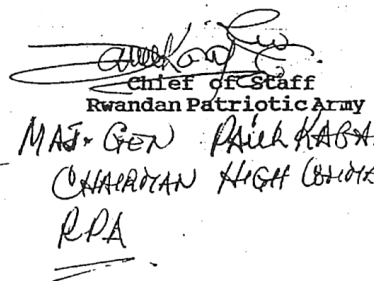 Chief of Staff
Rwandan Patriotic Army
MAJ. GEN PAUL KAGA
CHAIRMAN HIGH COMM
RPA